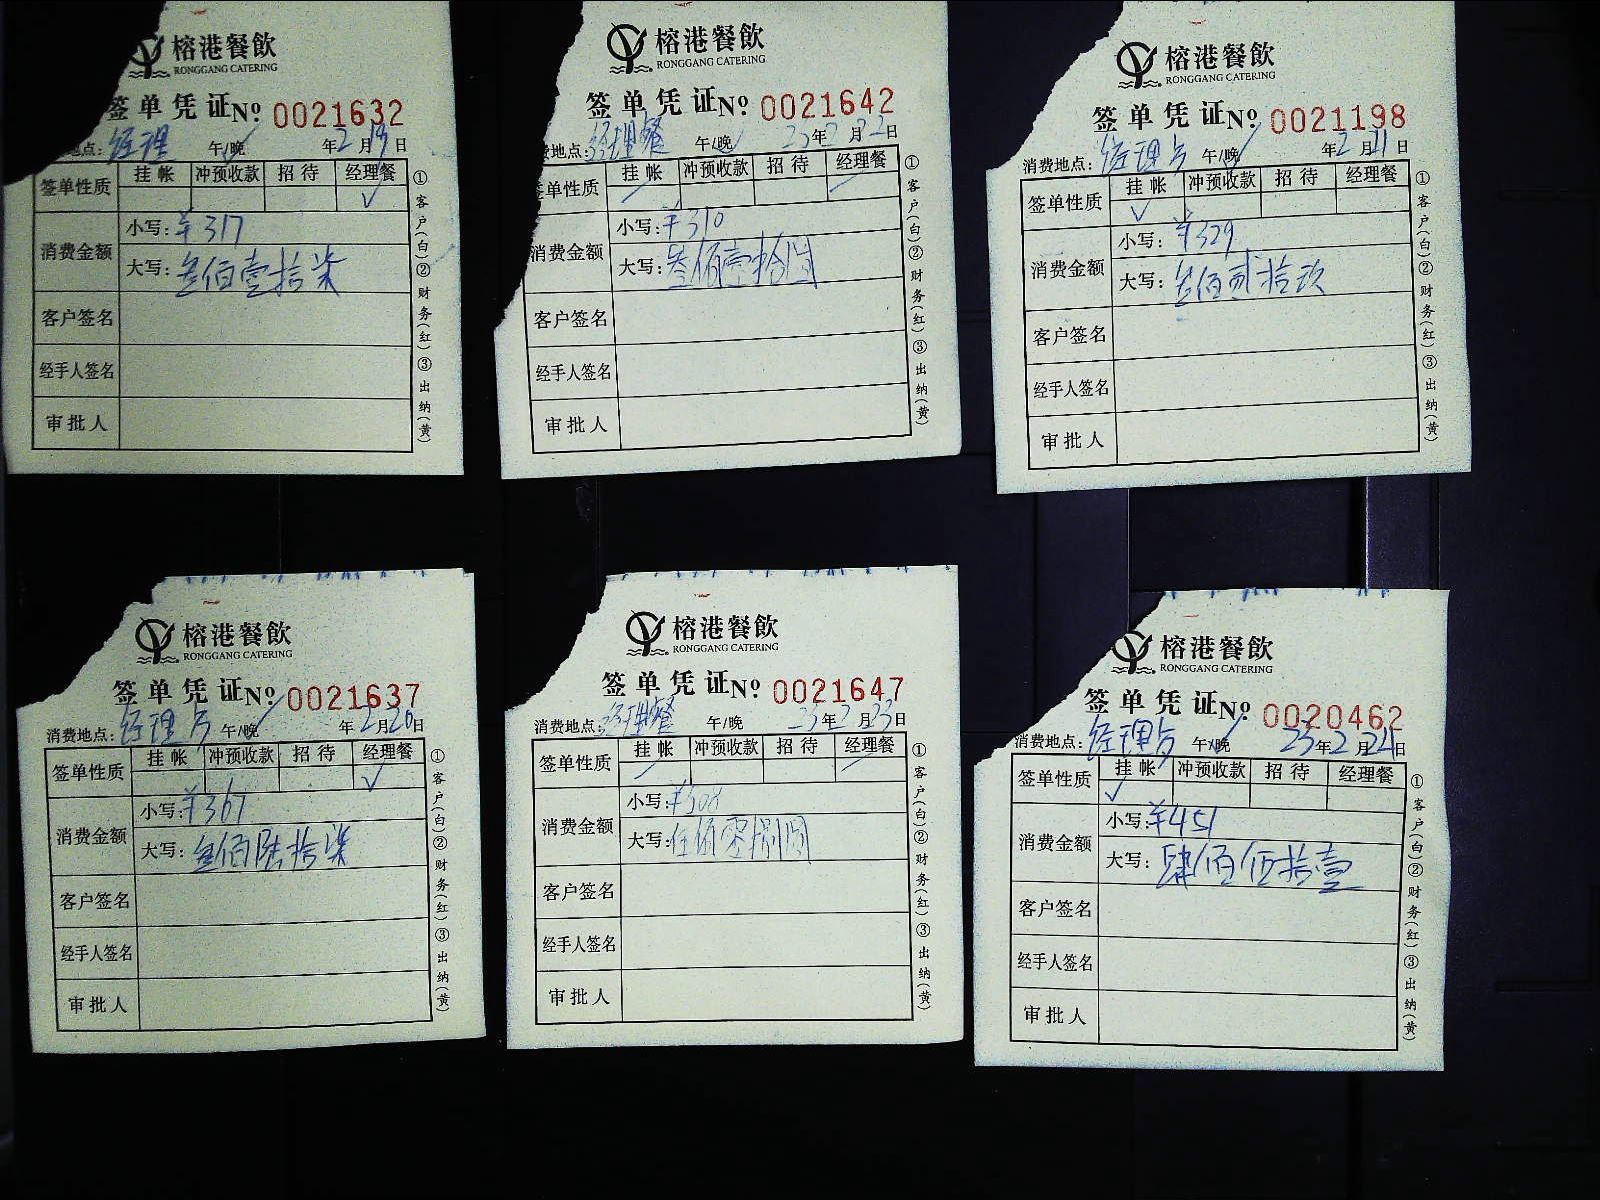 榕港餐飲
RONGGANG CATERING
签单凭证 № 0021632
地点: 经理 午/晚 年2月19日
签单性质 挂帐 冲预收款 招待 经理餐
√
消费金额 小写: ¥317
大写: 叁佰壹拾柒
客户签名
经手人签名
审批人
①客户(白)②财务(红)③出纳(黄)
榕港餐飲
RONGGANG CATERING
签单凭证 № 0021642
费地点: 经理餐 午/晚 23年2月22日
单性质 挂帐 冲预收款 招待 经理餐
消费金额 小写: ¥310
大写: 叁佰壹拾圆
客户签名
经手人签名
审批人
①客户(白)②财务(红)③出纳(黄)
榕港餐飲
RONGGANG CATERING
签单凭证 № 0021198
消费地点: 经理 午/晚 年2月21日
签单性质 挂帐 冲预收款 招待 经理餐
√
消费金额 小写: ¥329
大写: 叁佰贰拾玖
客户签名
经手人签名
审批人
①客户(白)②财务(红)③出纳(黄)
榕港餐飲
RONGGANG CATERING
签单凭证 № 0021637
消费地点: 经理 午/晚 年2月20日
签单性质 挂帐 冲预收款 招待 经理餐
√
消费金额 小写: ¥367
大写: 叁佰陆拾柒
客户签名
经手人签名
审批人
①客户(白)②财务(红)③出纳(黄)
榕港餐飲
RONGGANG CATERING
签单凭证 № 0021647
消费地点: 经理餐 午/晚 23年2月23日
签单性质 挂帐 冲预收款 招待 经理餐
消费金额 小写: ¥508
大写: 伍佰零捌圆
客户签名
经手人签名
审批人
①客户(白)②财务(红)③出纳(黄)
榕港餐飲
RONGGANG CATERING
签单凭证 № 0020462
消费地点: 经理 午/晚 23年2月24日
签单性质 挂帐 冲预收款 招待 经理餐
√
消费金额 小写: ¥451
大写: 肆佰伍拾壹
客户签名
经手人签名
审批人
①客户(白)②财务(红)③出纳(黄)